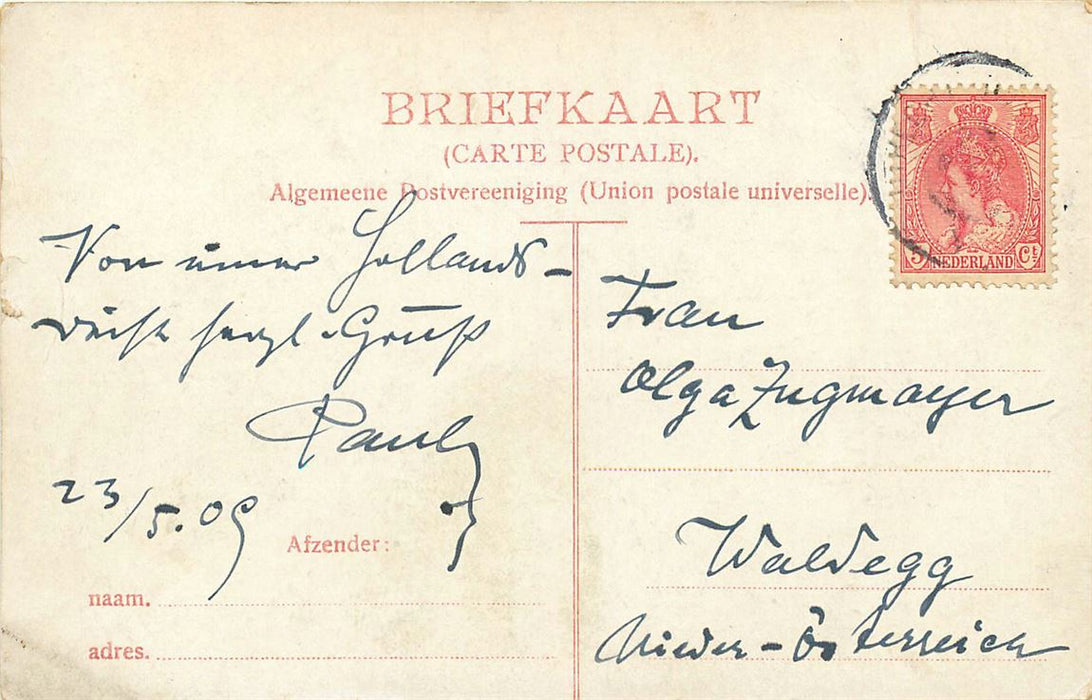 BRIEFKAART
(CARTE POSTALE).
Algemeene Postvereeniging (Union postale universelle).
5 NEDERLAND Ct
Von Hollands-
herzl. Gruß
Paul
23/5.09
Afzender:
naam.
adres.
Frau
Olga Zugmayer
Waldegg
Nieder-Österreich